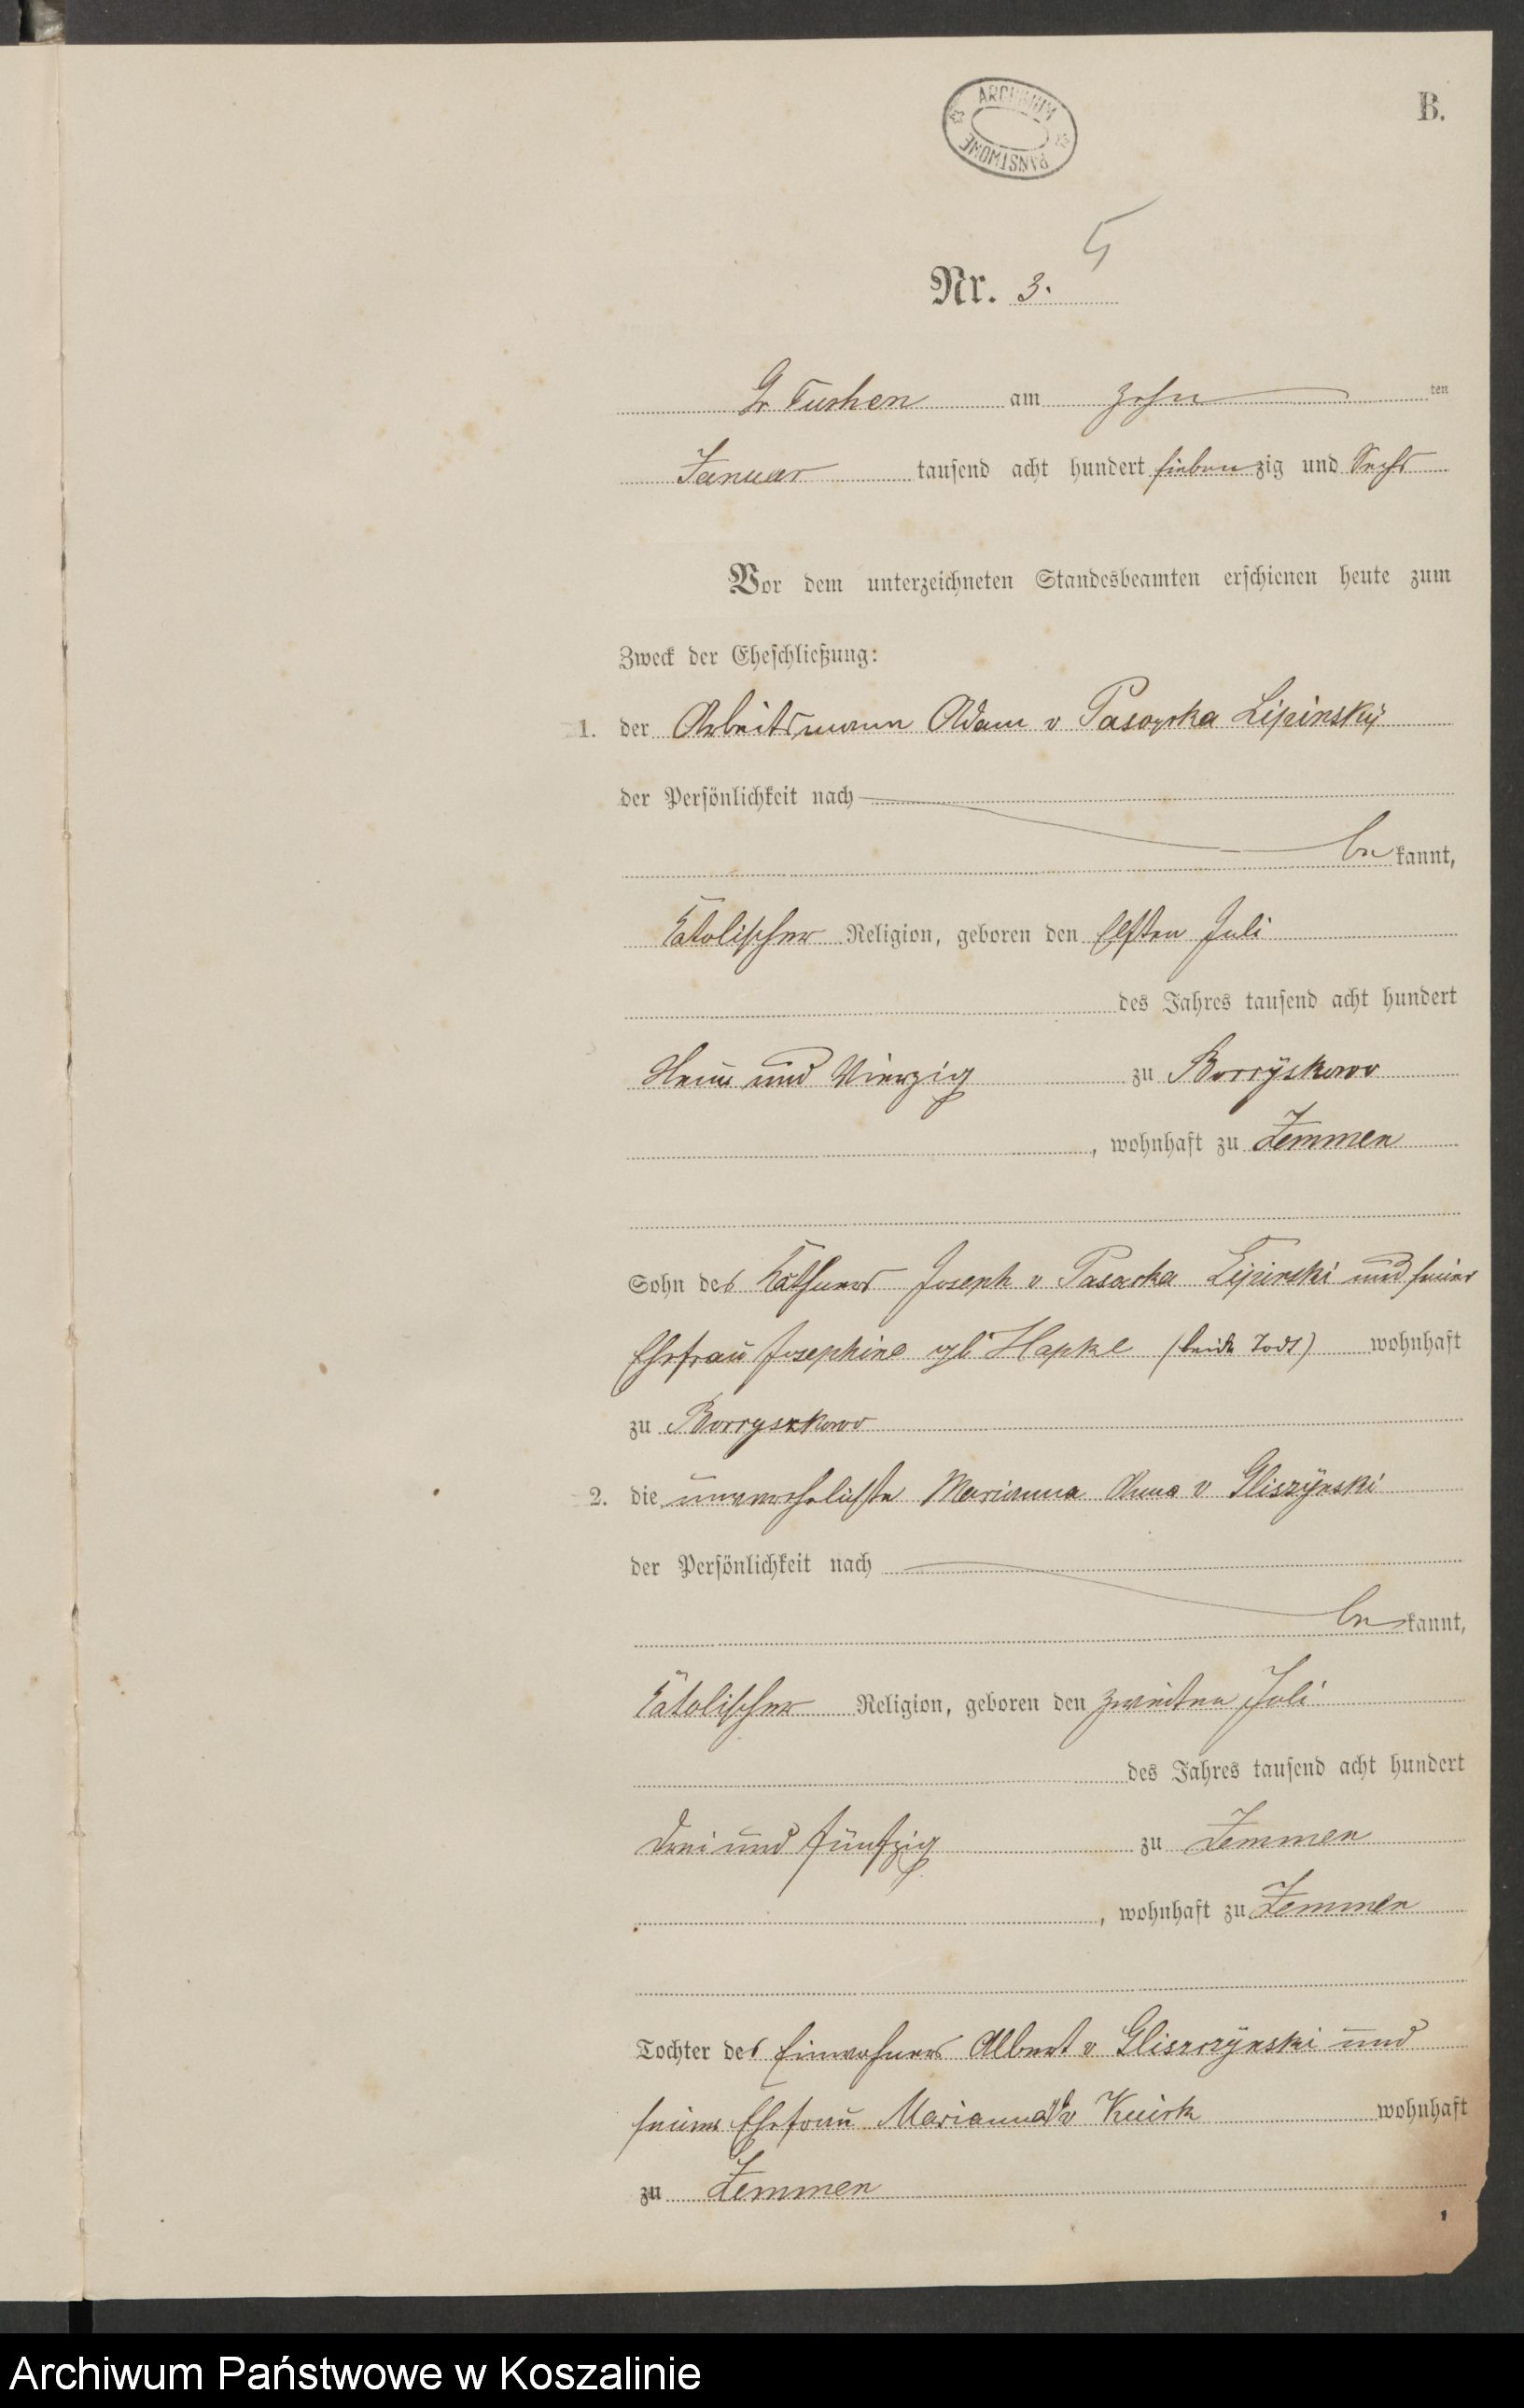 ARCHIWUM PAŃSTWOWE
B.
5
Nr. 3.
Gr Tuchen am zehn ten
Januar tausend acht hundert siebenzig und Sechs
Vor dem unterzeichneten Standesbeamten erschienen heute zum
Zweck der Eheschließung:
1. der Arbeitsmann Adam v Lipinsky
der Persönlichkeit nach
be kannt,
Katolischer Religion, geboren den Elften Juli
des Jahres tausend acht hundert
Neun und Vierzig zu Borryskowo
, wohnhaft zu Zemmen
Sohn des Käthners Joseph v Lipinski und seiner
Ehefrau Josephine Hapke (beide Todt) wohnhaft
zu Borryszkowo
2. die unverehelichte Marianna Anna v Gliszÿnski
der Persönlichkeit nach
be kannt,
Katolischer Religion, geboren den zweiten Juli
des Jahres tausend acht hundert
drei und fünfzig zu Zemmen
, wohnhaft zu Zemmen
Tochter des Einwohners Albert v Gliszczÿnski und
seiner Ehefrau Marianna wohnhaft
zu Zemmen
Archiwum Państwowe w Koszalinie